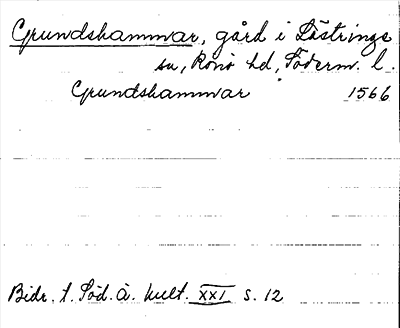 Grundshammar, gård i Lästringe
sn, Rönö hd, Söderm. l.
Grundshammar 1566
Bidr. t. Söd. ä. kult. XXI s. 12